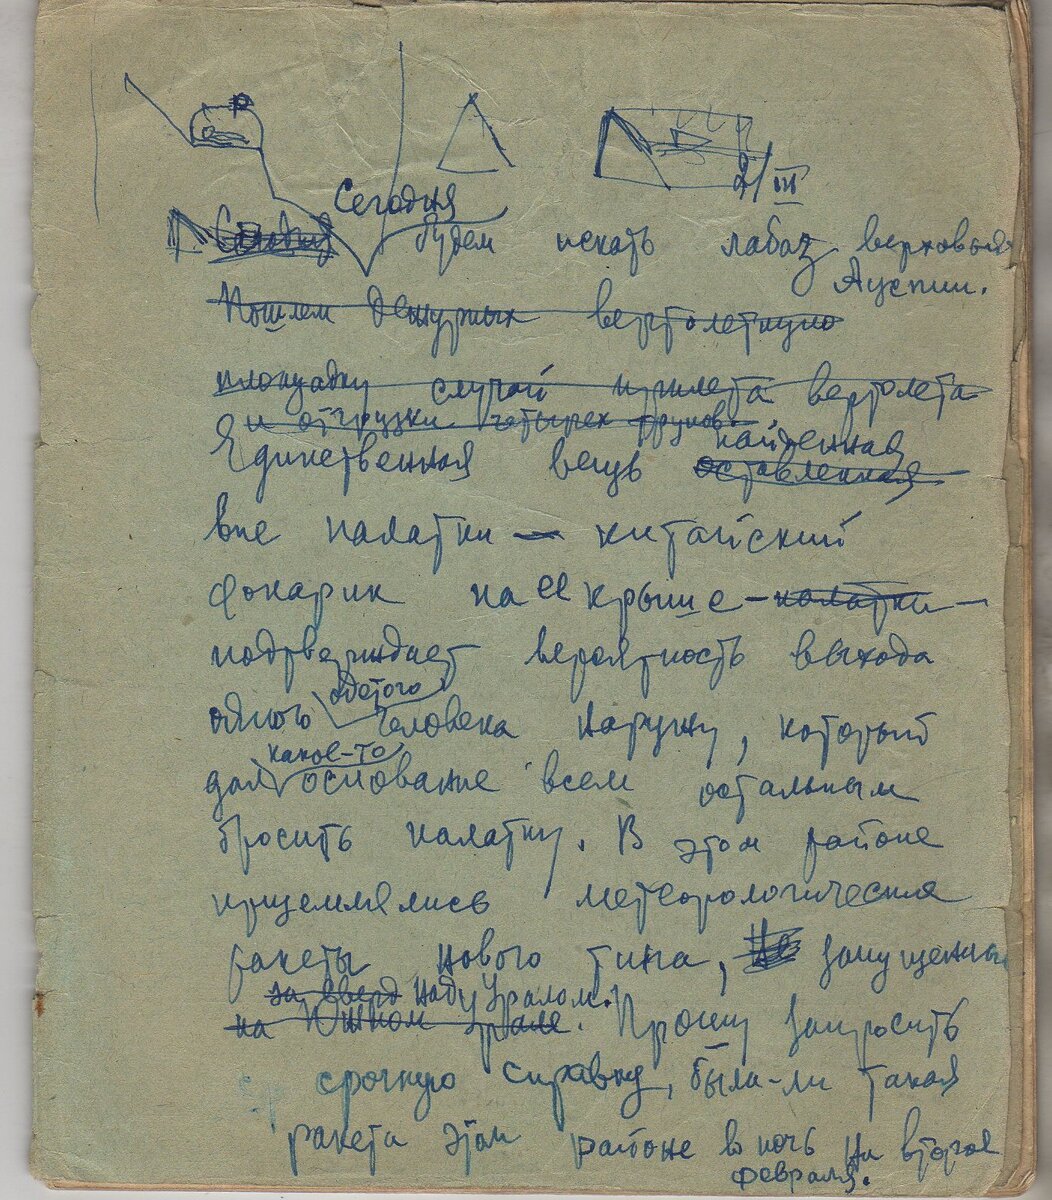 2/III
Сегодня
будем искать лабаз верховья
Ауспии.
Пошлем дежурных вертолетную
площадку случай прилета вертолета
и отгрузки четырех трупов.
найденная
Единственная вещь оставленная
вне палатки — китайский
фонарик на ее крыше — палатки —
подтверждает вероятность выхода
одетого
одного человека наружу, который
какое-то
дал основание всем остальным
бросить палатку. В этом районе
приземлялись метеорологические
ракеты нового типа, запущенные
над Уралом.
на Южном Урале. Прошу запросить
срочную справку, была-ли такая
ракета этом районе в ночь на второе
февраля.